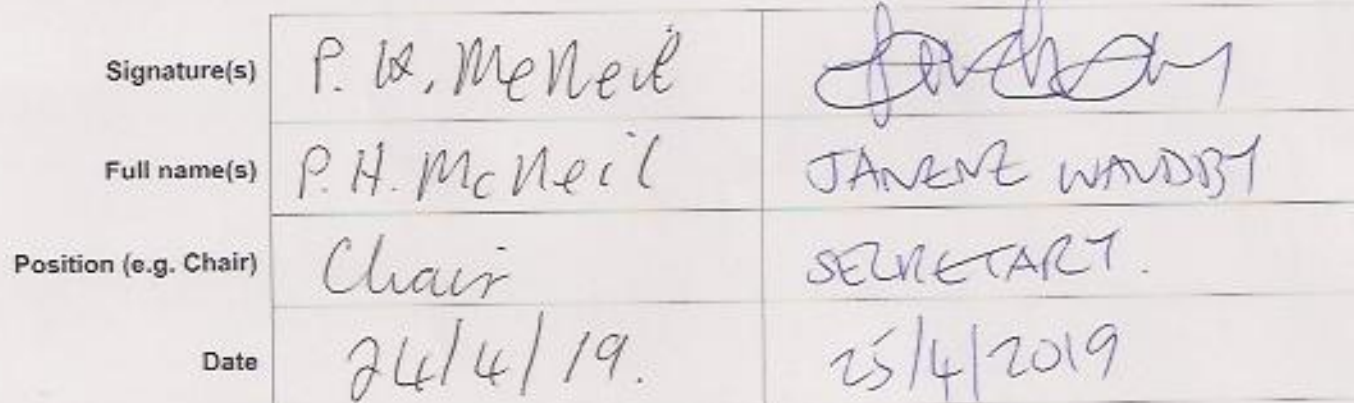 Signature(s) P. H. McNeil
Full name(s) P. H. McNeil JANENE WANDBY
Position (e.g. Chair) Chair SECRETARY.
Date 24/4/19. 25/4/2019